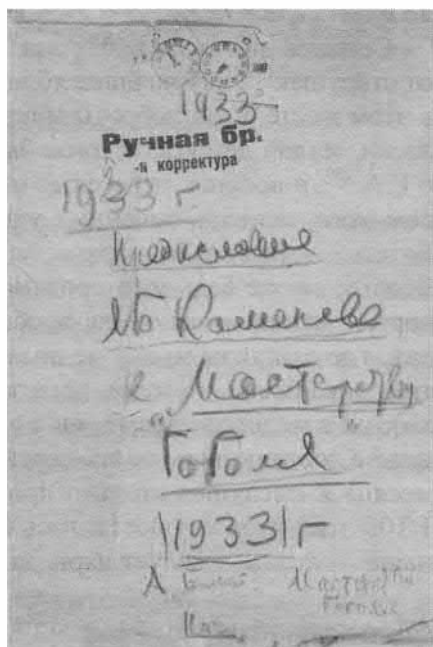 1933
Ручная бр.
-я корректура
1933 г
Предисловие
Каменева
к "Мастерству
Гоголя
1933 г
А Белый